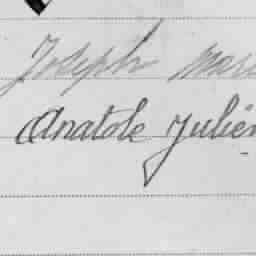 Joseph Mari
Anatole Julien